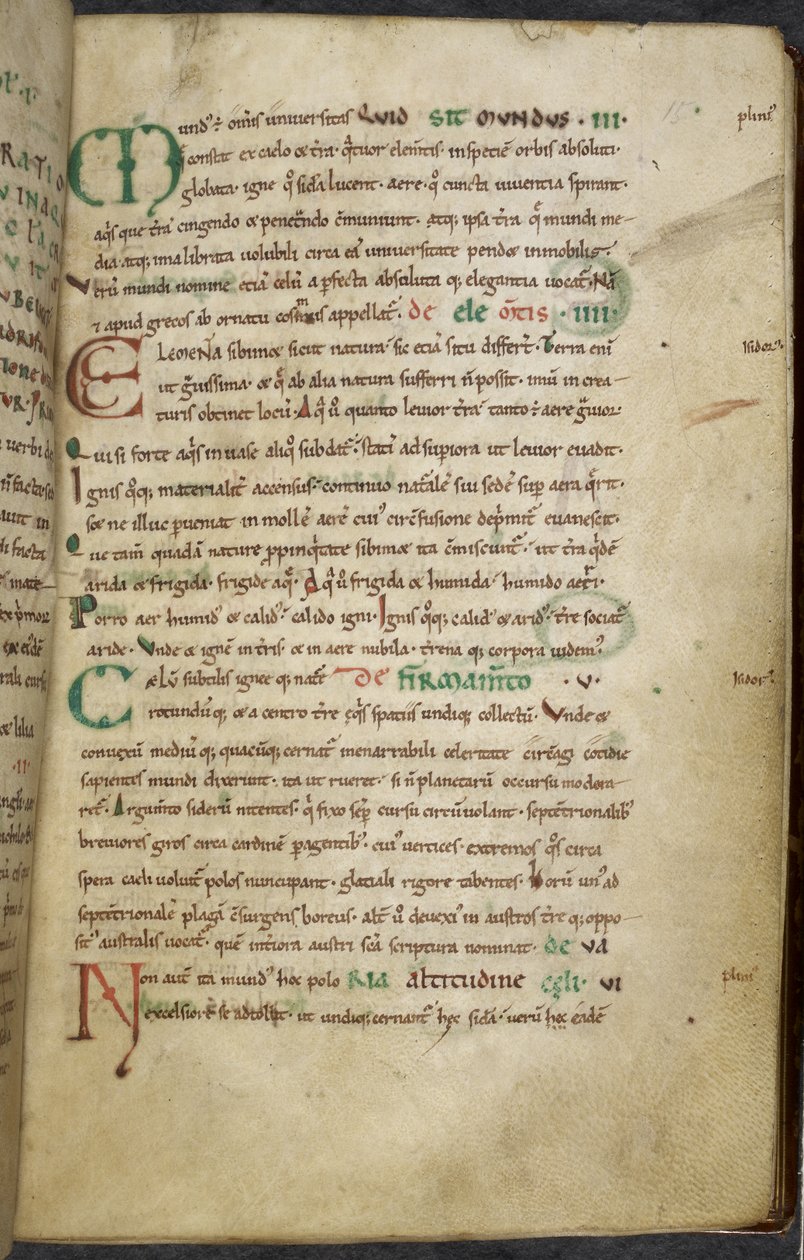 Mund᷒ ÷ om̅is universitas QUID SIT MUNDUS · III· plini᷒
q̓ constat ex caelo & t̅ra · q̓tuor elem̅tis · in speciē orbis absoluti·
globata· igne q̊ sid̅a lucent· aere· q̊ cuncta viventia spirant·
aq̓s que t̅rā cingendo & penet̓ndo c̄muniunt· atq; ipsa t̅ra quę̄ mundi me-
dia atq; ima librata volubili circa eā universitate pend& inmobilis·
Verū mundi nomine etiā celū a p̱fecta absoluta q; elegantia vocat̅· Nā
⁊ apud grecos ab ornatu cosmis appellat̅· DE ELEM̅TIS · IIII·
Elem̅ta sibim& sicut natura· sic etiā situ differt̅· Terra eni̅ isidor᷒
ut g̓vissima· & quę̄ ab alia natura sufferri n̄ possit· imū in crea-
turis obtinet locū· Aq̓ v̊ quanto levior t̅ra· tanto ÷ aere g̓vior·
Qui si forte aq̓s in vase aliq̊ subdat̅· stati̅ ad sup̱iora ut levior evadit·
Ignis q̊q; materialit̅ accensus· continuo nat̓alē sui sedē sup̱ aera q̓rit·
s& ne illuc p̱veniat in mollē aerē cui᷒ circ̄fusione dep̓mit̅ evanescit·
Que tam̅ quadā nature p̱pinq̓tate sibim& ita c̄miscunt̅· ut t̅ra q̓dē
arida & frigida· frigide aq̨̄· Aq̓ v̊ frigida & humida· humido aeri·
Porro aer humid᷒ & calid᷒· calido igni· Ignis q̊q; calid᷒ & arid᷒· t̅re sociat̅
aride· Unde & ignē in t̅ris· & in aere nubila· t̅rena q; corpora videm᷒
Cælū subtilis ignee q; nat̅e DE FIRMAM̅TO · V· isidor᷒
rotundū q; & a centro t̅re ęq̓s spatiis undiq; collectū· Unde &
convexū mediū q; quacūq; cernat̅ inenarrabili celeritate circ̄agi cotidie
sapientes mundi dixerunt· ita ut rueret· si n̄ planetarū occursu modera-
ret̅· Argum̅to siderū nitentes· q̓ fixo sēp̱ cursu circūvolant· septe̅trionalib᷒
breviores giros circa cardinē p̱agentib᷒· cui᷒ vertices· extremos q̊s circa
spera caeli volvit̅ polos nuncupant· glatiali rigore tabentes· Horū un᷒ ad
septe̅trionalē plagā c̄surgens boreus· alt̅ v̊ devexi᷒ in austros t̅re q; oppo-
sit᷒ australis vocat̅· quē int̅iora austri sc̅a scriptura nominat· DE VA
Non aut̅ ita mund᷒ hoc polo RIA ALTITUDINE CĘLI· VI plini᷒
excelsiore se adtollit· ut undiq; cernant̅ hęc sid̅a· verū hęc eadē